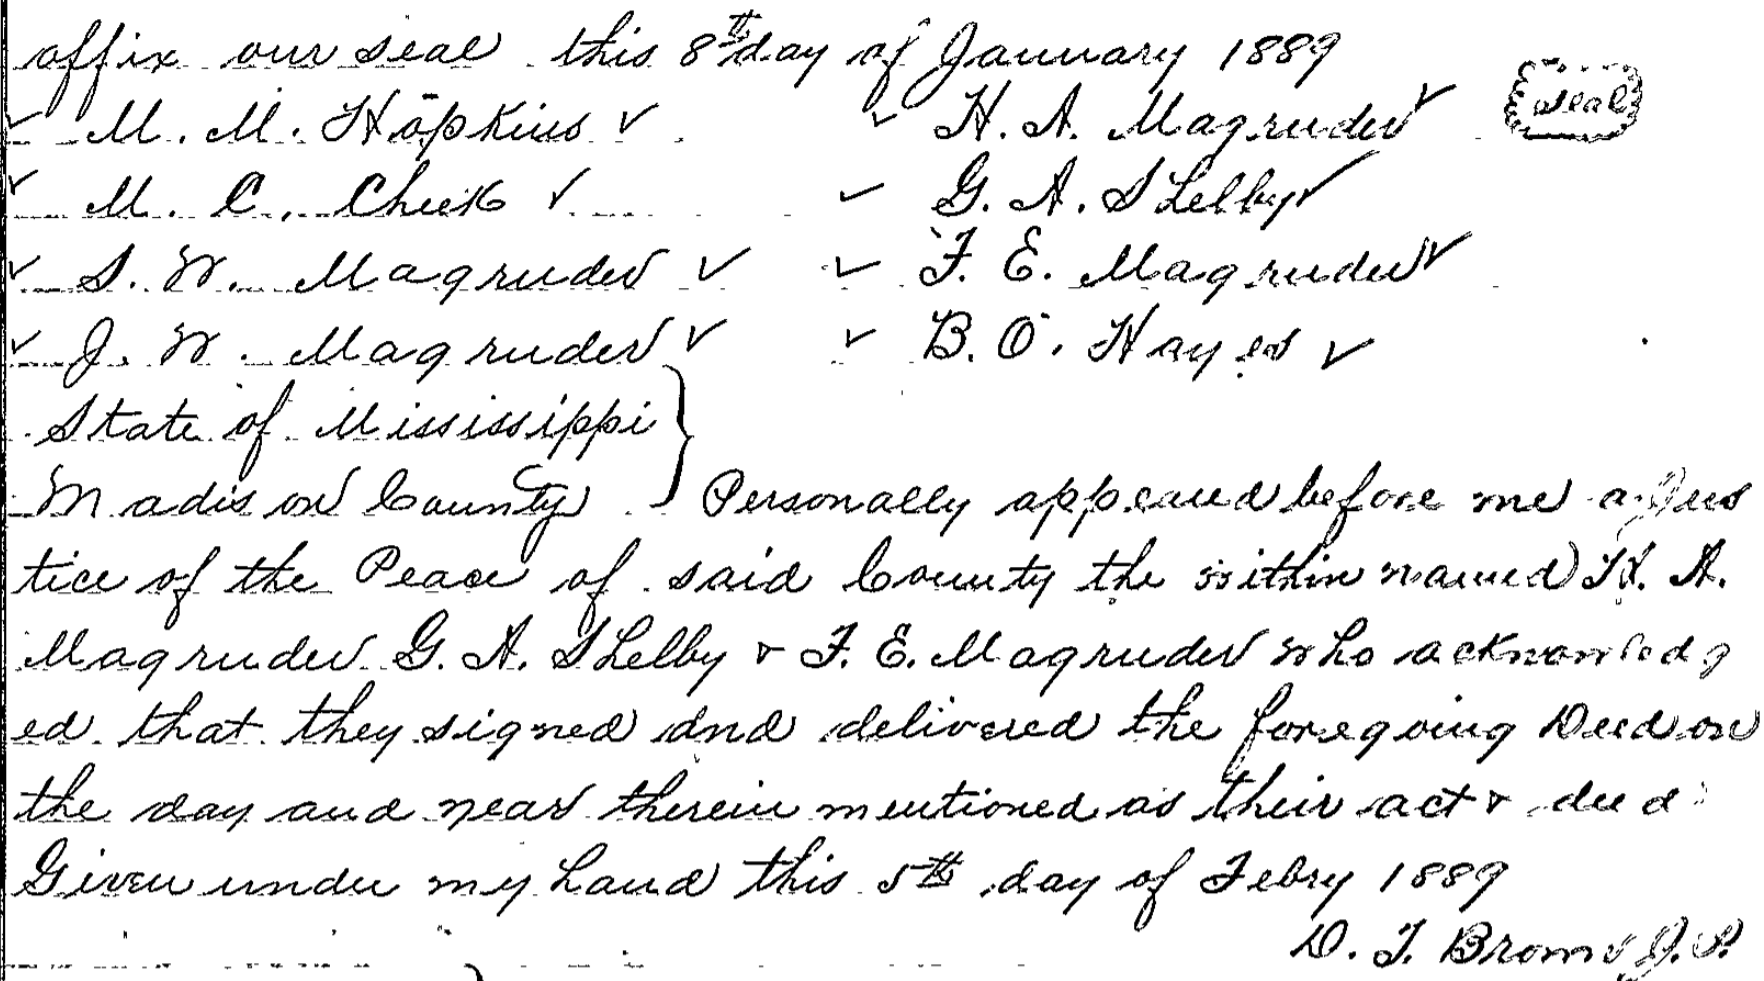 affix our seal this 8th day of January 1889
✓ M. M. Hopkins ✓ ✓ H. A. Magruder ✓ Seal
✓ M. C. Cheek ✓ ✓ G. A. Shelby ✓
✓ S. W. Magruder ✓ ✓ F. E. Magruder ✓
✓ J. W. Magruder ✓ ✓ B. O. Hayes ✓
State of Mississippi }
Madison County } Personally appeared before me a Jus
tice of the Peace of said County the within named H. A.
Magruder G. A. Shelby & F. E. Magruder who acknowledg
ed that they signed and delivered the foregoing Deed on
the day and year therein mentioned as their act & deed
Given under my hand this 5th day of Febry 1889
D. T. Brown J.P.